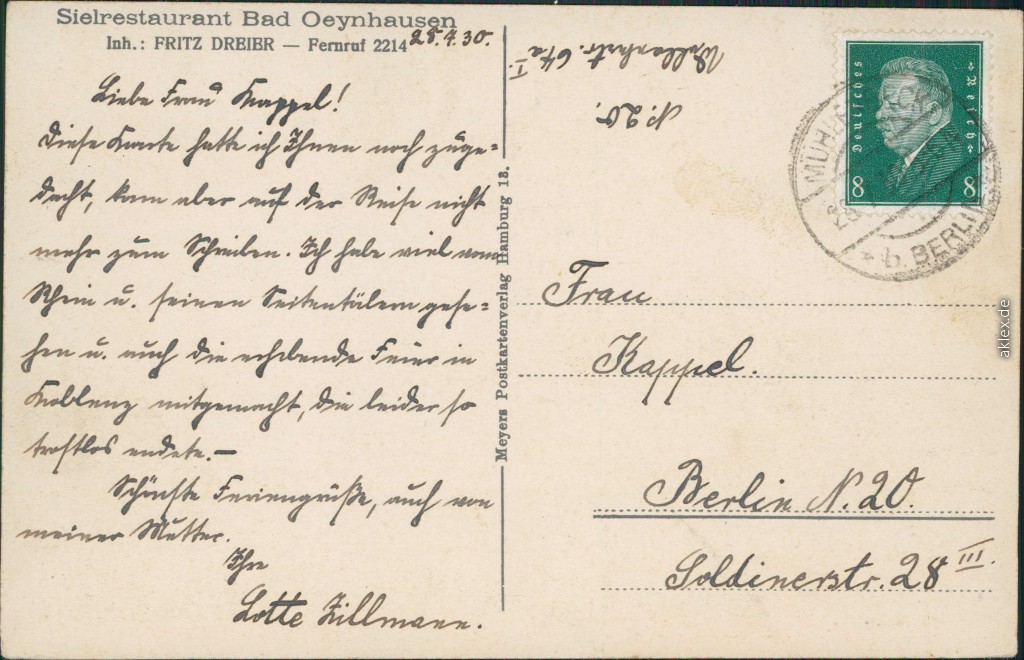 Sielrestaurant Bad Oeynhausen
Inh.: FRITZ DREIER — Fernruf 2214
28.7.30.
Liebe Frau Kappel!
Diese Karte hatte ich Ihnen noch zuge-
dacht, kam aber auf der Reise nicht
mehr zum Schreiben. Ich habe viel vom
Rhein u. seinen Seitentälern gese-
hen u. auch die erhebende Feier in
Koblenz mitgemacht, die leider so
trostlos endete.—
Schönste Feriengrüße, auch von
meiner Mutter.
Ihre
Lotte Zillmann.
Meyers Postkartenverlag Hamburg 13.
64a I.
N. 20.
Deutsches Reich
8 8
b. BERLIN
Frau
Kappel.
Berlin N. 20.
Soldinerstr. 28 III.
aklex.de